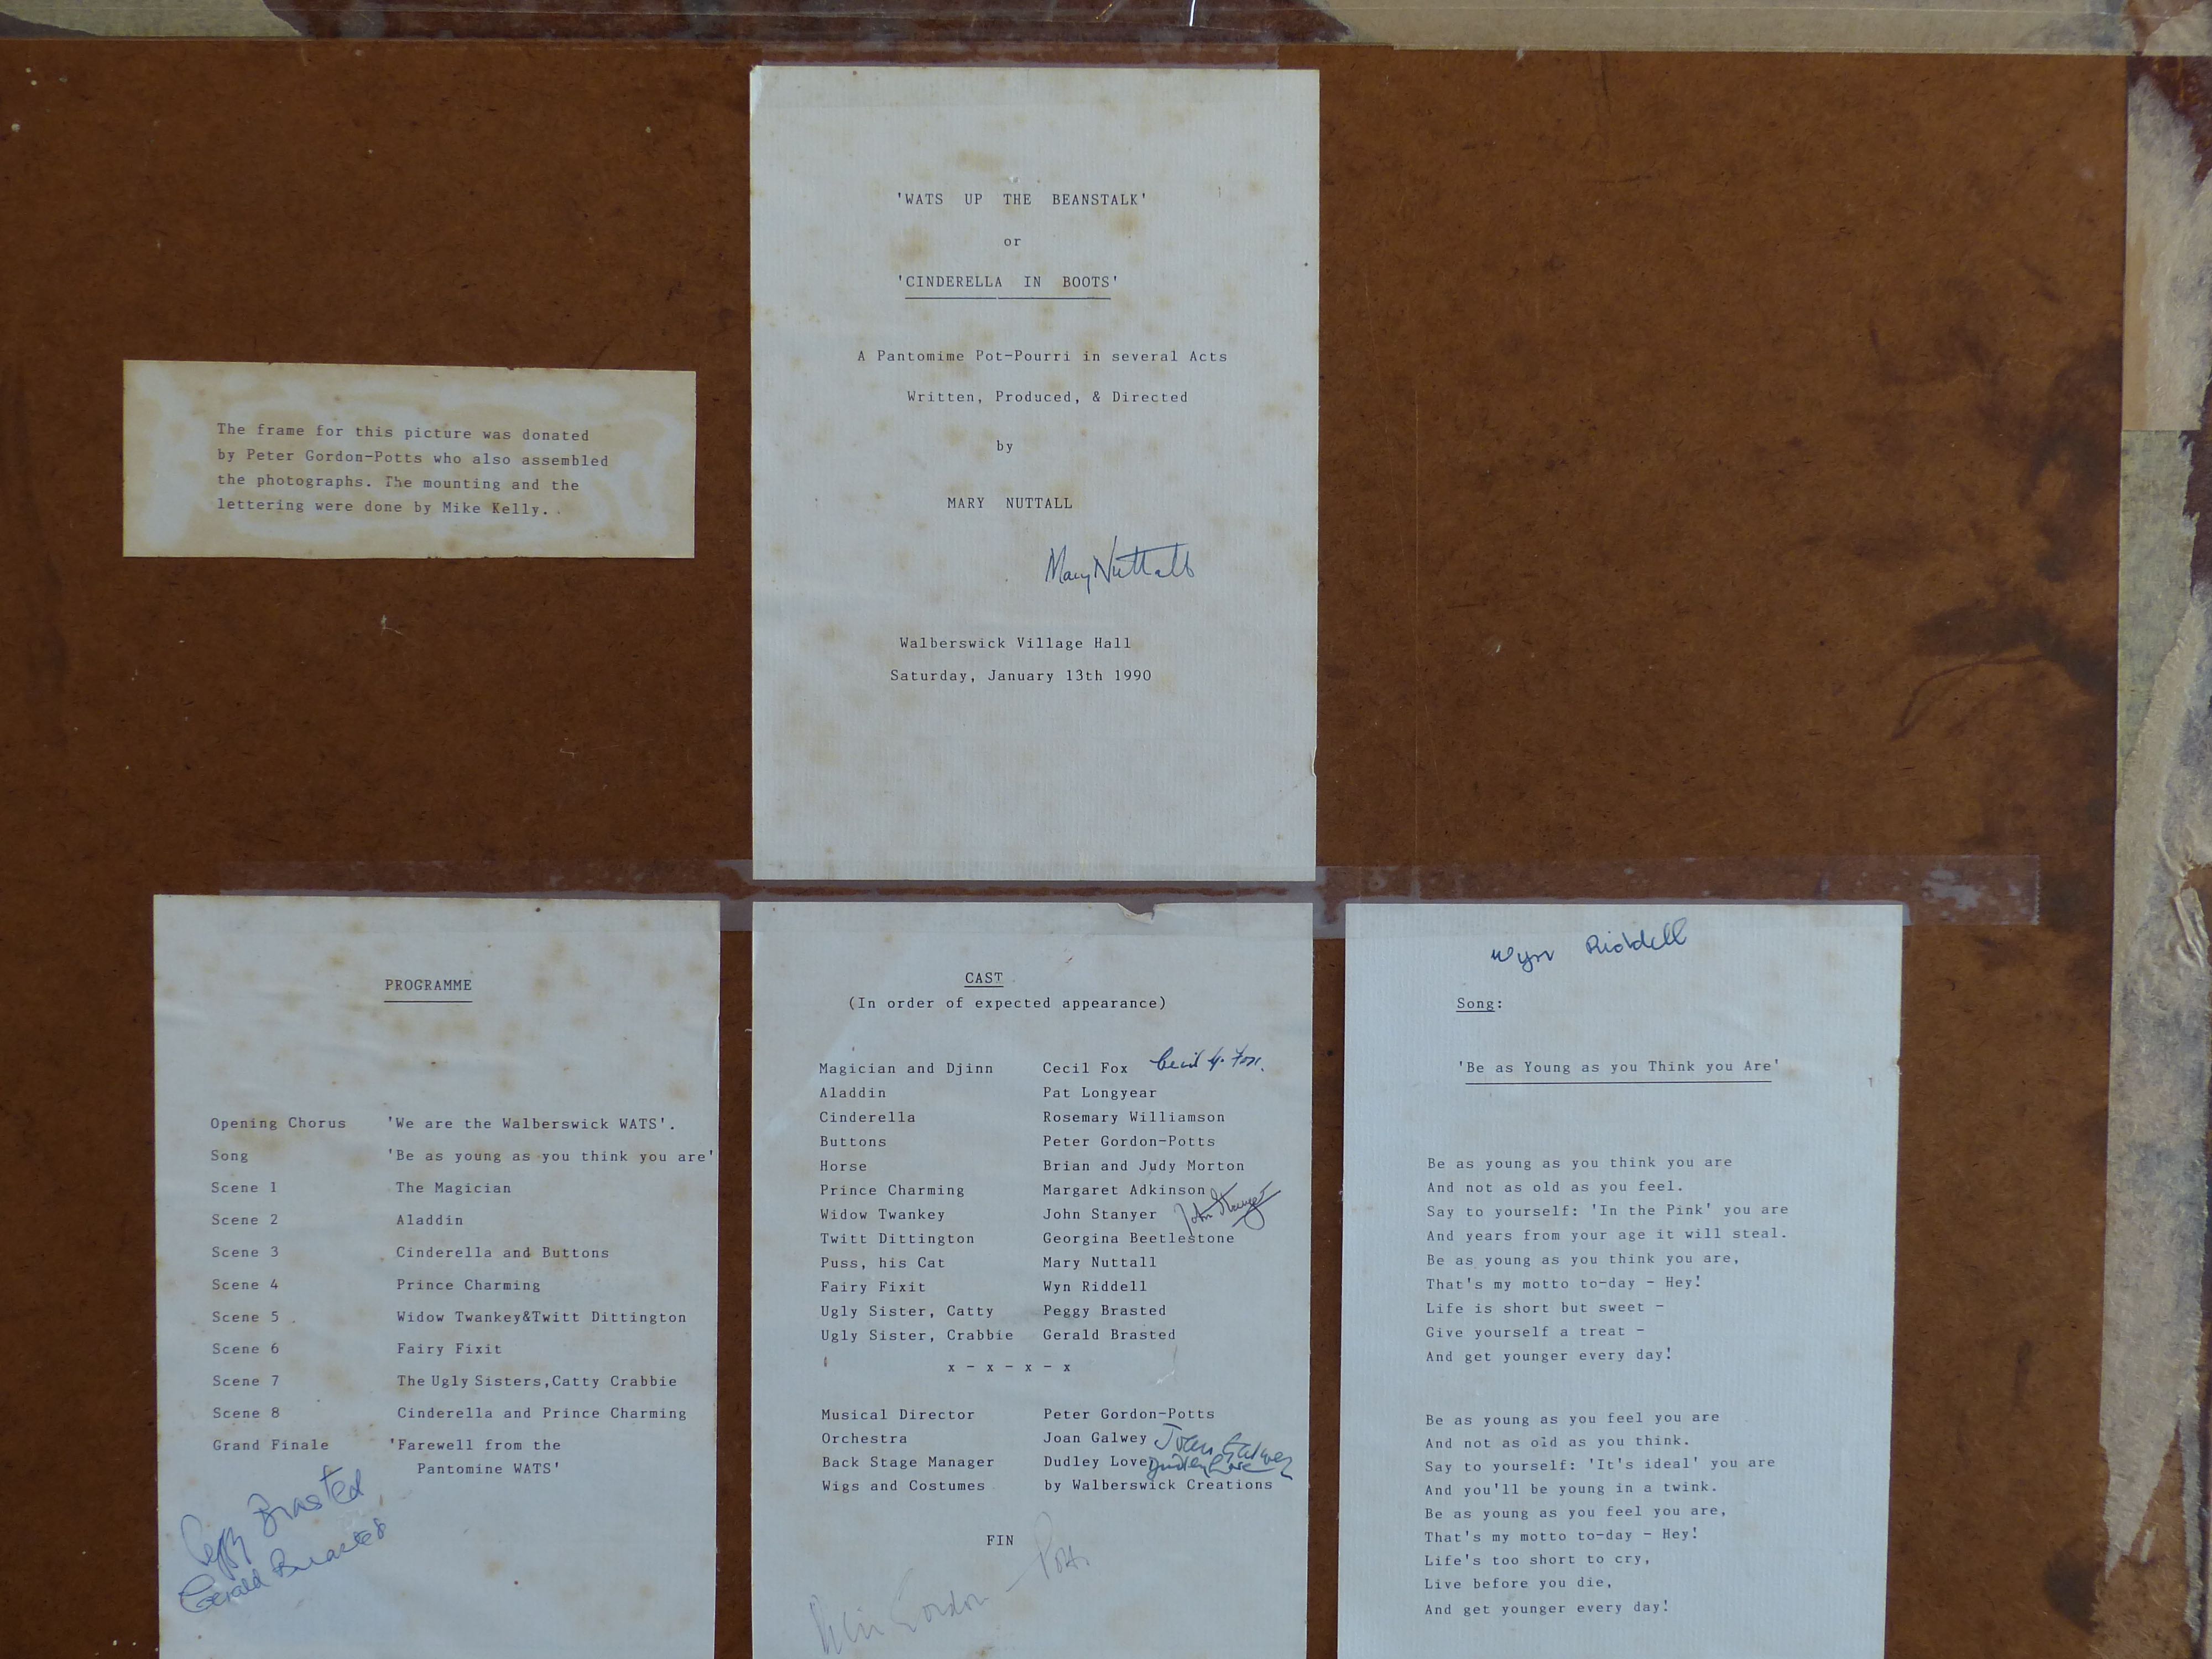 'WATS UP THE BEANSTALK'
or
'CINDERELLA IN BOOTS'
A Pantomime Pot-Pourri in several Acts
Written, Produced, & Directed
by
MARY NUTTALL
Mary Nuttall
Walberswick Village Hall
Saturday, January 13th 1990
The frame for this picture was donated
by Peter Gordon-Potts who also assembled
the photographs. The mounting and the
lettering were done by Mike Kelly.
PROGRAMME
Opening Chorus 'We are the Walberswick WATS'.
Song 'Be as young as you think you are'
Scene 1 The Magician
Scene 2 Aladdin
Scene 3 Cinderella and Buttons
Scene 4 Prince Charming
Scene 5 Widow Twankey&Twitt Dittington
Scene 6 Fairy Fixit
Scene 7 The Ugly Sisters,Catty Crabbie
Scene 8 Cinderella and Prince Charming
Grand Finale 'Farewell from the
Pantomine WATS'
Peggy Brasted
Gerald Brasted
CAST
(In order of expected appearance)
Magician and Djinn Cecil Fox Cecil G. Fox.
Aladdin Pat Longyear
Cinderella Rosemary Williamson
Buttons Peter Gordon-Potts
Horse Brian and Judy Morton
Prince Charming Margaret Adkinson
Widow Twankey John Stanyer John Stanyer
Twitt Dittington Georgina Beetlestone
Puss, his Cat Mary Nuttall
Fairy Fixit Wyn Riddell
Ugly Sister, Catty Peggy Brasted
Ugly Sister, Crabbie Gerald Brasted
x - x - x - x
Musical Director Peter Gordon-Potts
Orchestra Joan Galwey Joan Galwey
Back Stage Manager Dudley Love Dudley Love
Wigs and Costumes by Walberswick Creations
FIN
Peter Gordon-Potts
Wyn Riddell
Song:
'Be as Young as you Think you Are'
Be as young as you think you are
And not as old as you feel.
Say to yourself: 'In the Pink' you are
And years from your age it will steal.
Be as young as you think you are,
That's my motto to-day - Hey!
Life is short but sweet -
Give yourself a treat -
And get younger every day!
Be as young as you feel you are
And not as old as you think.
Say to yourself: 'It's ideal' you are
And you'll be young in a twink.
Be as young as you feel you are,
That's my motto to-day - Hey!
Life's too short to cry,
Live before you die,
And get younger every day!